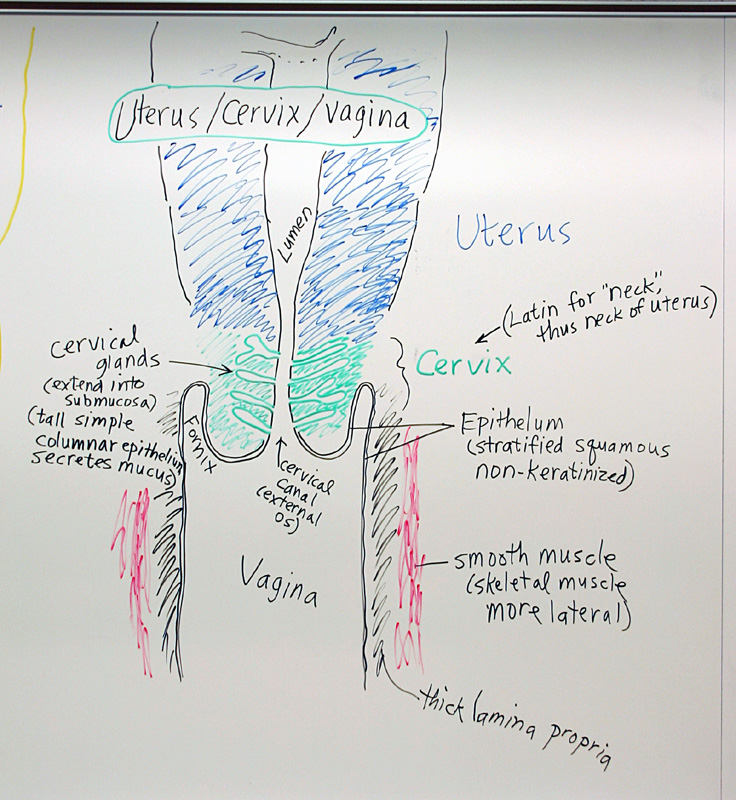 Uterus/Cervix/Vagina
Lumen
Uterus
(Latin for "neck",
thus neck of uterus)
Cervix
cervical
glands
(extend into
submucosa)
(tall simple
columnar epithelium
secretes mucus)
Fornix
cervical
canal
(external
os)
Epithelum
(stratified squamous
non-keratinized)
Vagina
smooth muscle
(skeletal muscle
more lateral)
thick lamina propria